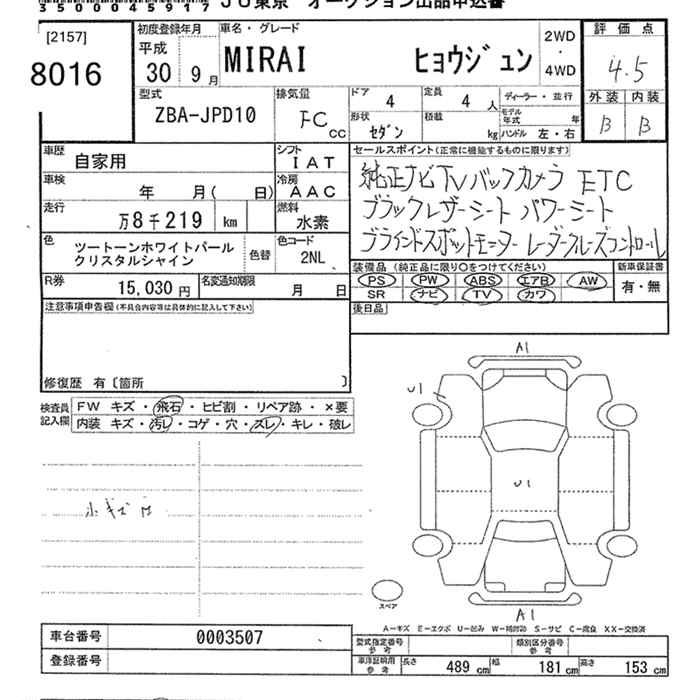 3500045917 JU東京 オークション出品申込書
[2157]
8016
初度登録年月
平成
30 9月
車名・グレード
MIRAI ヒョウジュン
2WD
・
4WD
評価点
4.5
型式
ZBA-JPD10
排気量
FC CC
ドア 4
定員 4 人
ディーラー・並行
形状 セダン
積載 kg
モデル年式 年
ハンドル 左・右
外装 内装
B B
車歴 自家用
シフト IAT
車検 年 月( 日)
冷房 AAC
走行 万8千219 km
燃料 水素
セールスポイント(正常に機能するものに限ります)
純正ナビTVバックカメラ ETC
ブラックレザーシート パワーシート
ブラインドスポットモーター レーダークルーズコントロール
色 ツートーンホワイトパール
クリスタルシャイン
色替
色コード 2NL
装備品(純正品に限り○をつけてください)
PS PW ABS エアB AW
SR ナビ TV カワ
新車保証書
有・無
R券 15,030 円
名変通知期限 月 日
後日品
注意事項申告欄(不具合内容等は具体的に記入して下さい)
修復歴 有〔箇所 〕
検査員記入欄
FW キズ・飛石・ヒビ割・リペア跡・×要
内装 キズ・汚レ・コゲ・穴・スレ・キレ・破レ
小キズ有
A1
U1
U1
A1
スペア
A-キズ E-エクボ U-凹ミ W-補修跡 S-サビ C-腐食 XX-交換済
車台番号 0003507
登録番号
型式指定番号 参考
類別区分番号 参考
車検証明用 参考
長さ 489 cm 幅 181 cm 高さ 153 cm